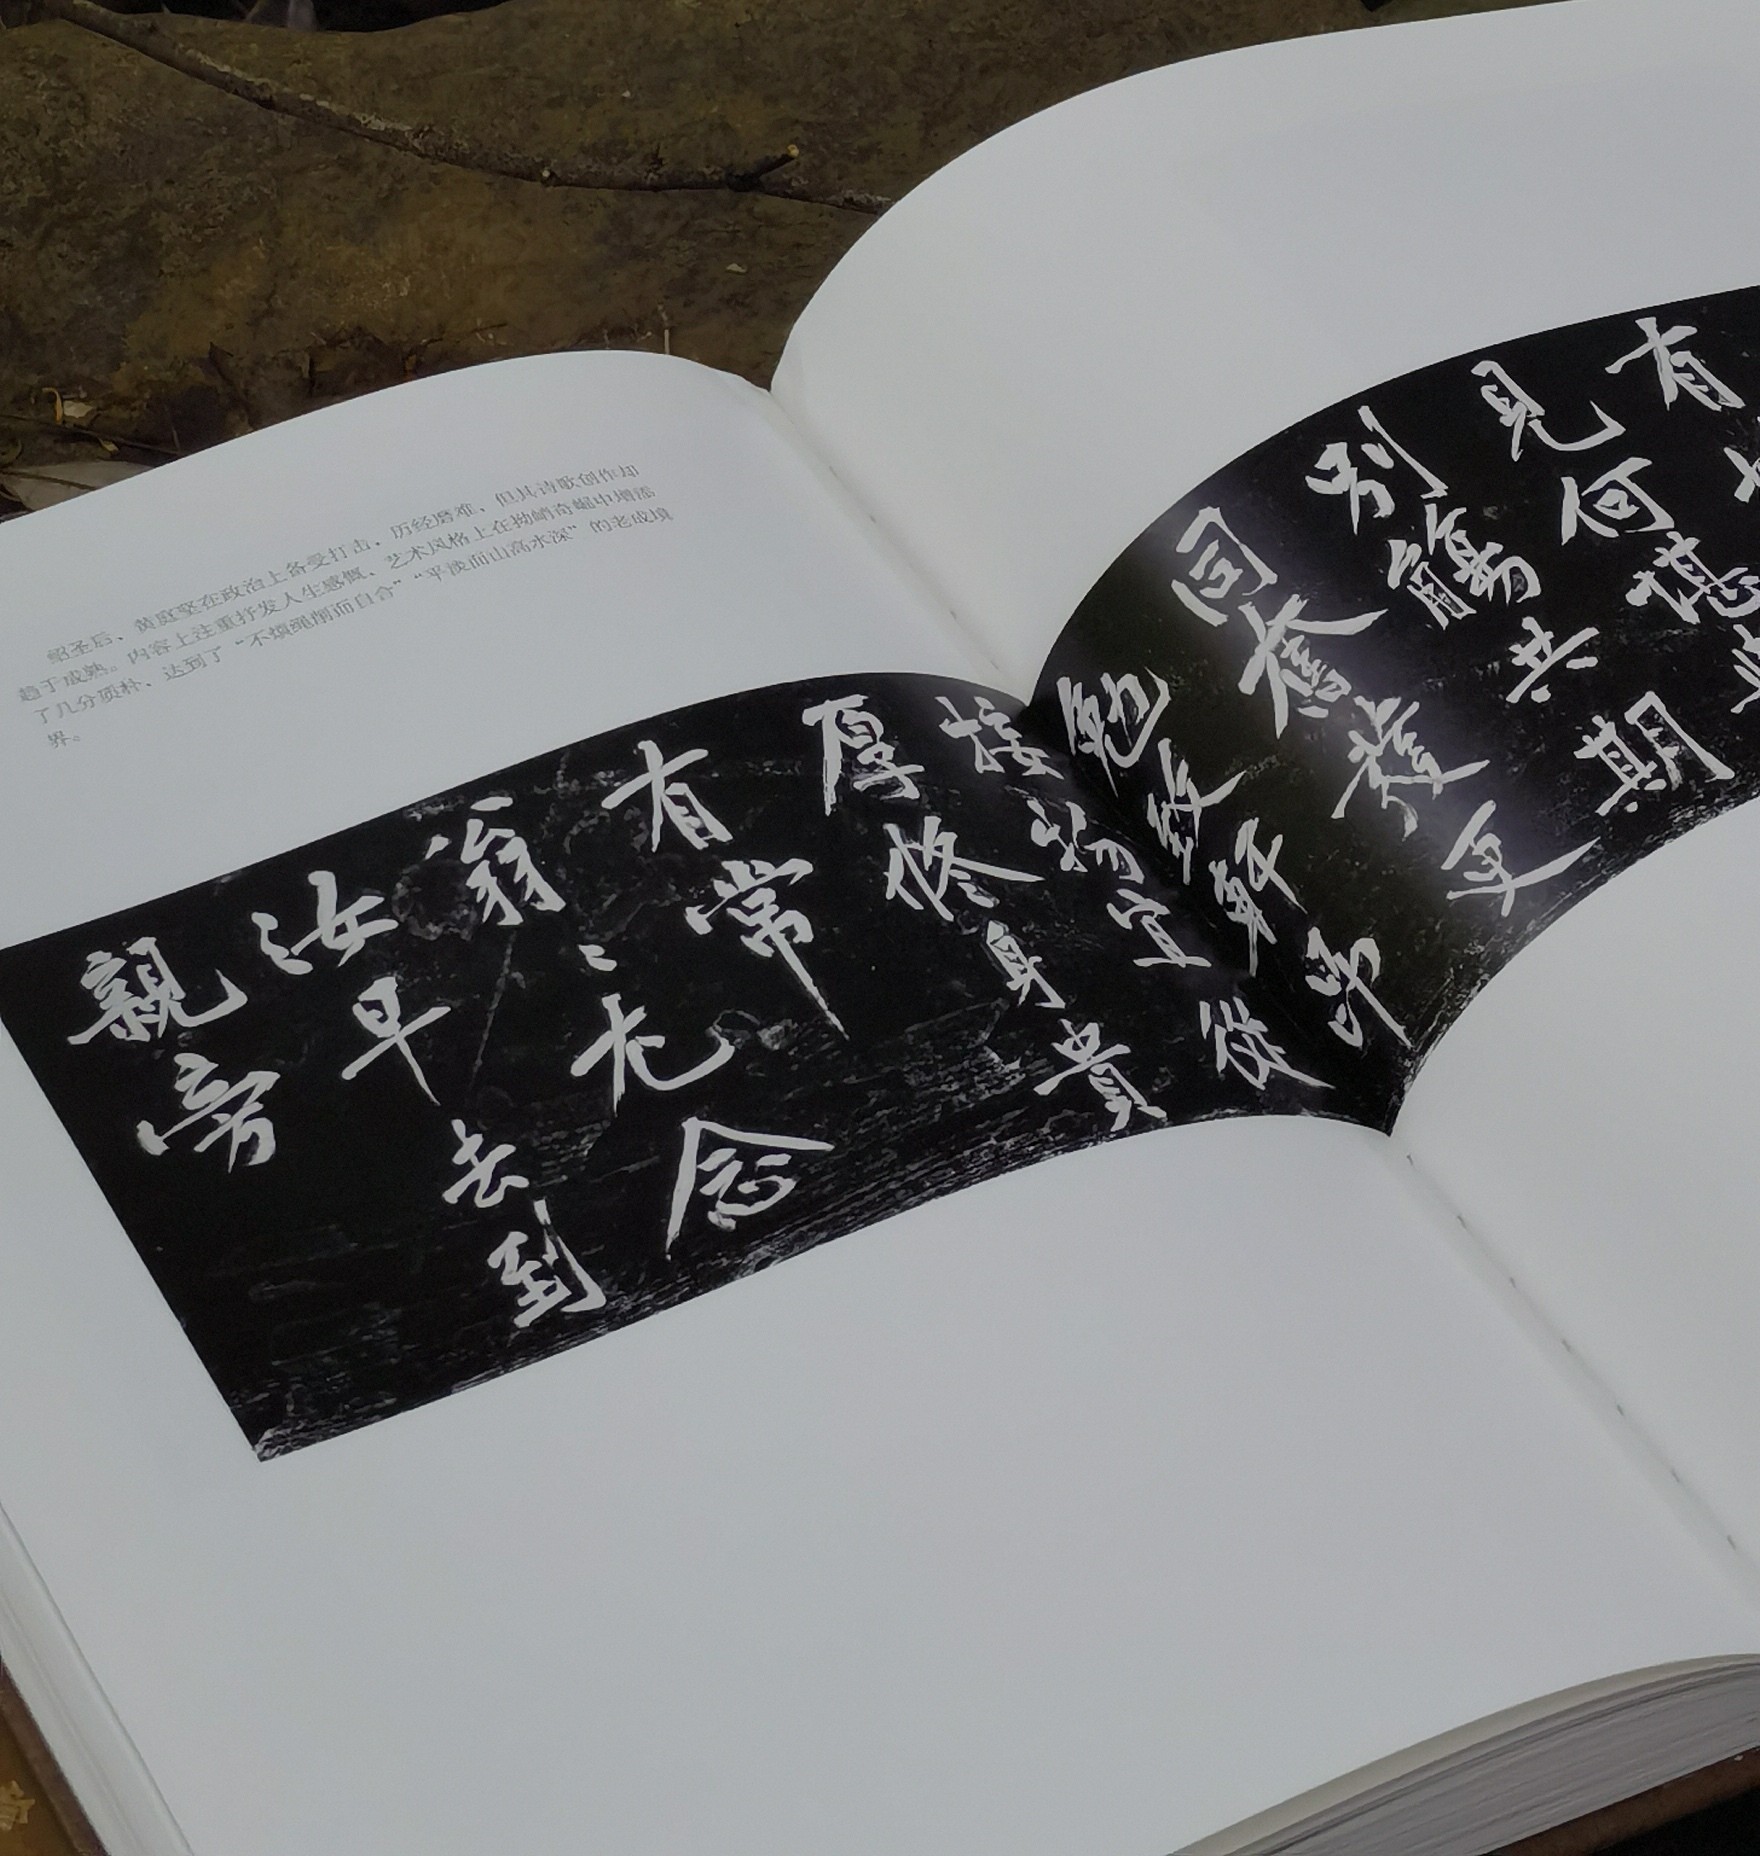 绍圣后，黄庭坚在政治上备受打击，历经磨难，但其诗歌创作却
趋于成熟。内容上注重抒发人生感慨，艺术风格上在拗峭奇崛中增添
了几分质朴，达到了“不烦绳削而自合”“平淡而山高水深”的老成境
界。
有
見何堪
别觴共期
回更
勉致軒昂
接物宜從
厚修身貴
有常
翁〻尤念
汝早去到
親旁